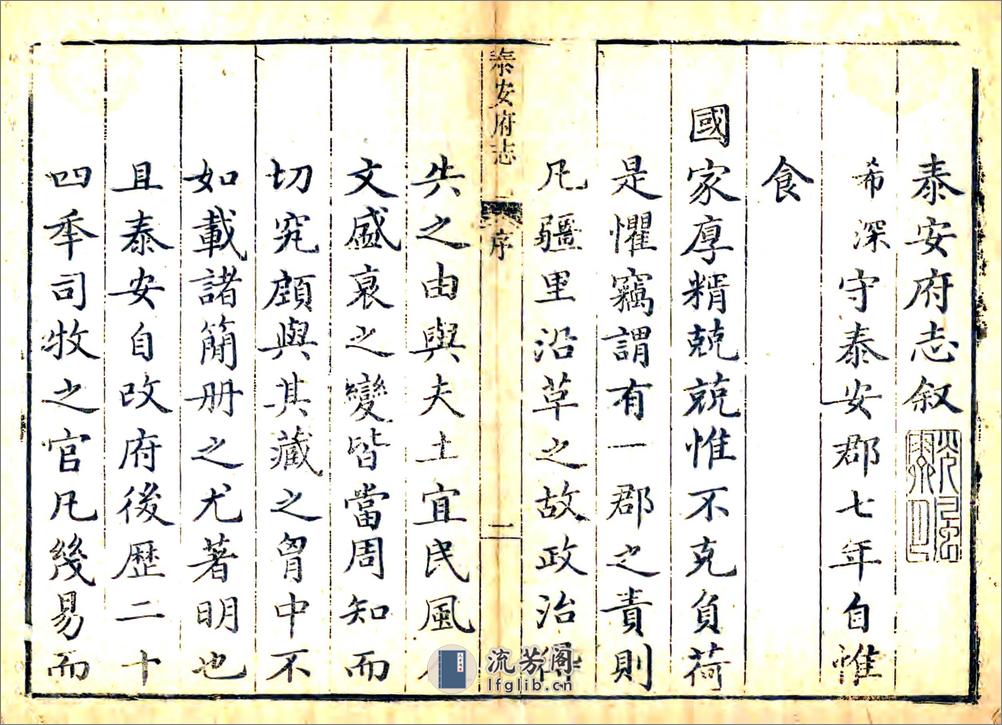 泰安府志叙
希深守泰安郡七年自惟
食
國家厚糈兢兢惟不克負荷
是懼竊謂有一郡之責則
凡疆里沿革之故政治
泰安府志 序 一
失之由與夫土宜民風
文盛衰之變皆當周知而
切究顧與其藏之胷中不
如載諸簡册之尤著明也
且泰安自改府後歷二十
四秊司牧之官凡幾易而
流芳阁
lfglib.cn